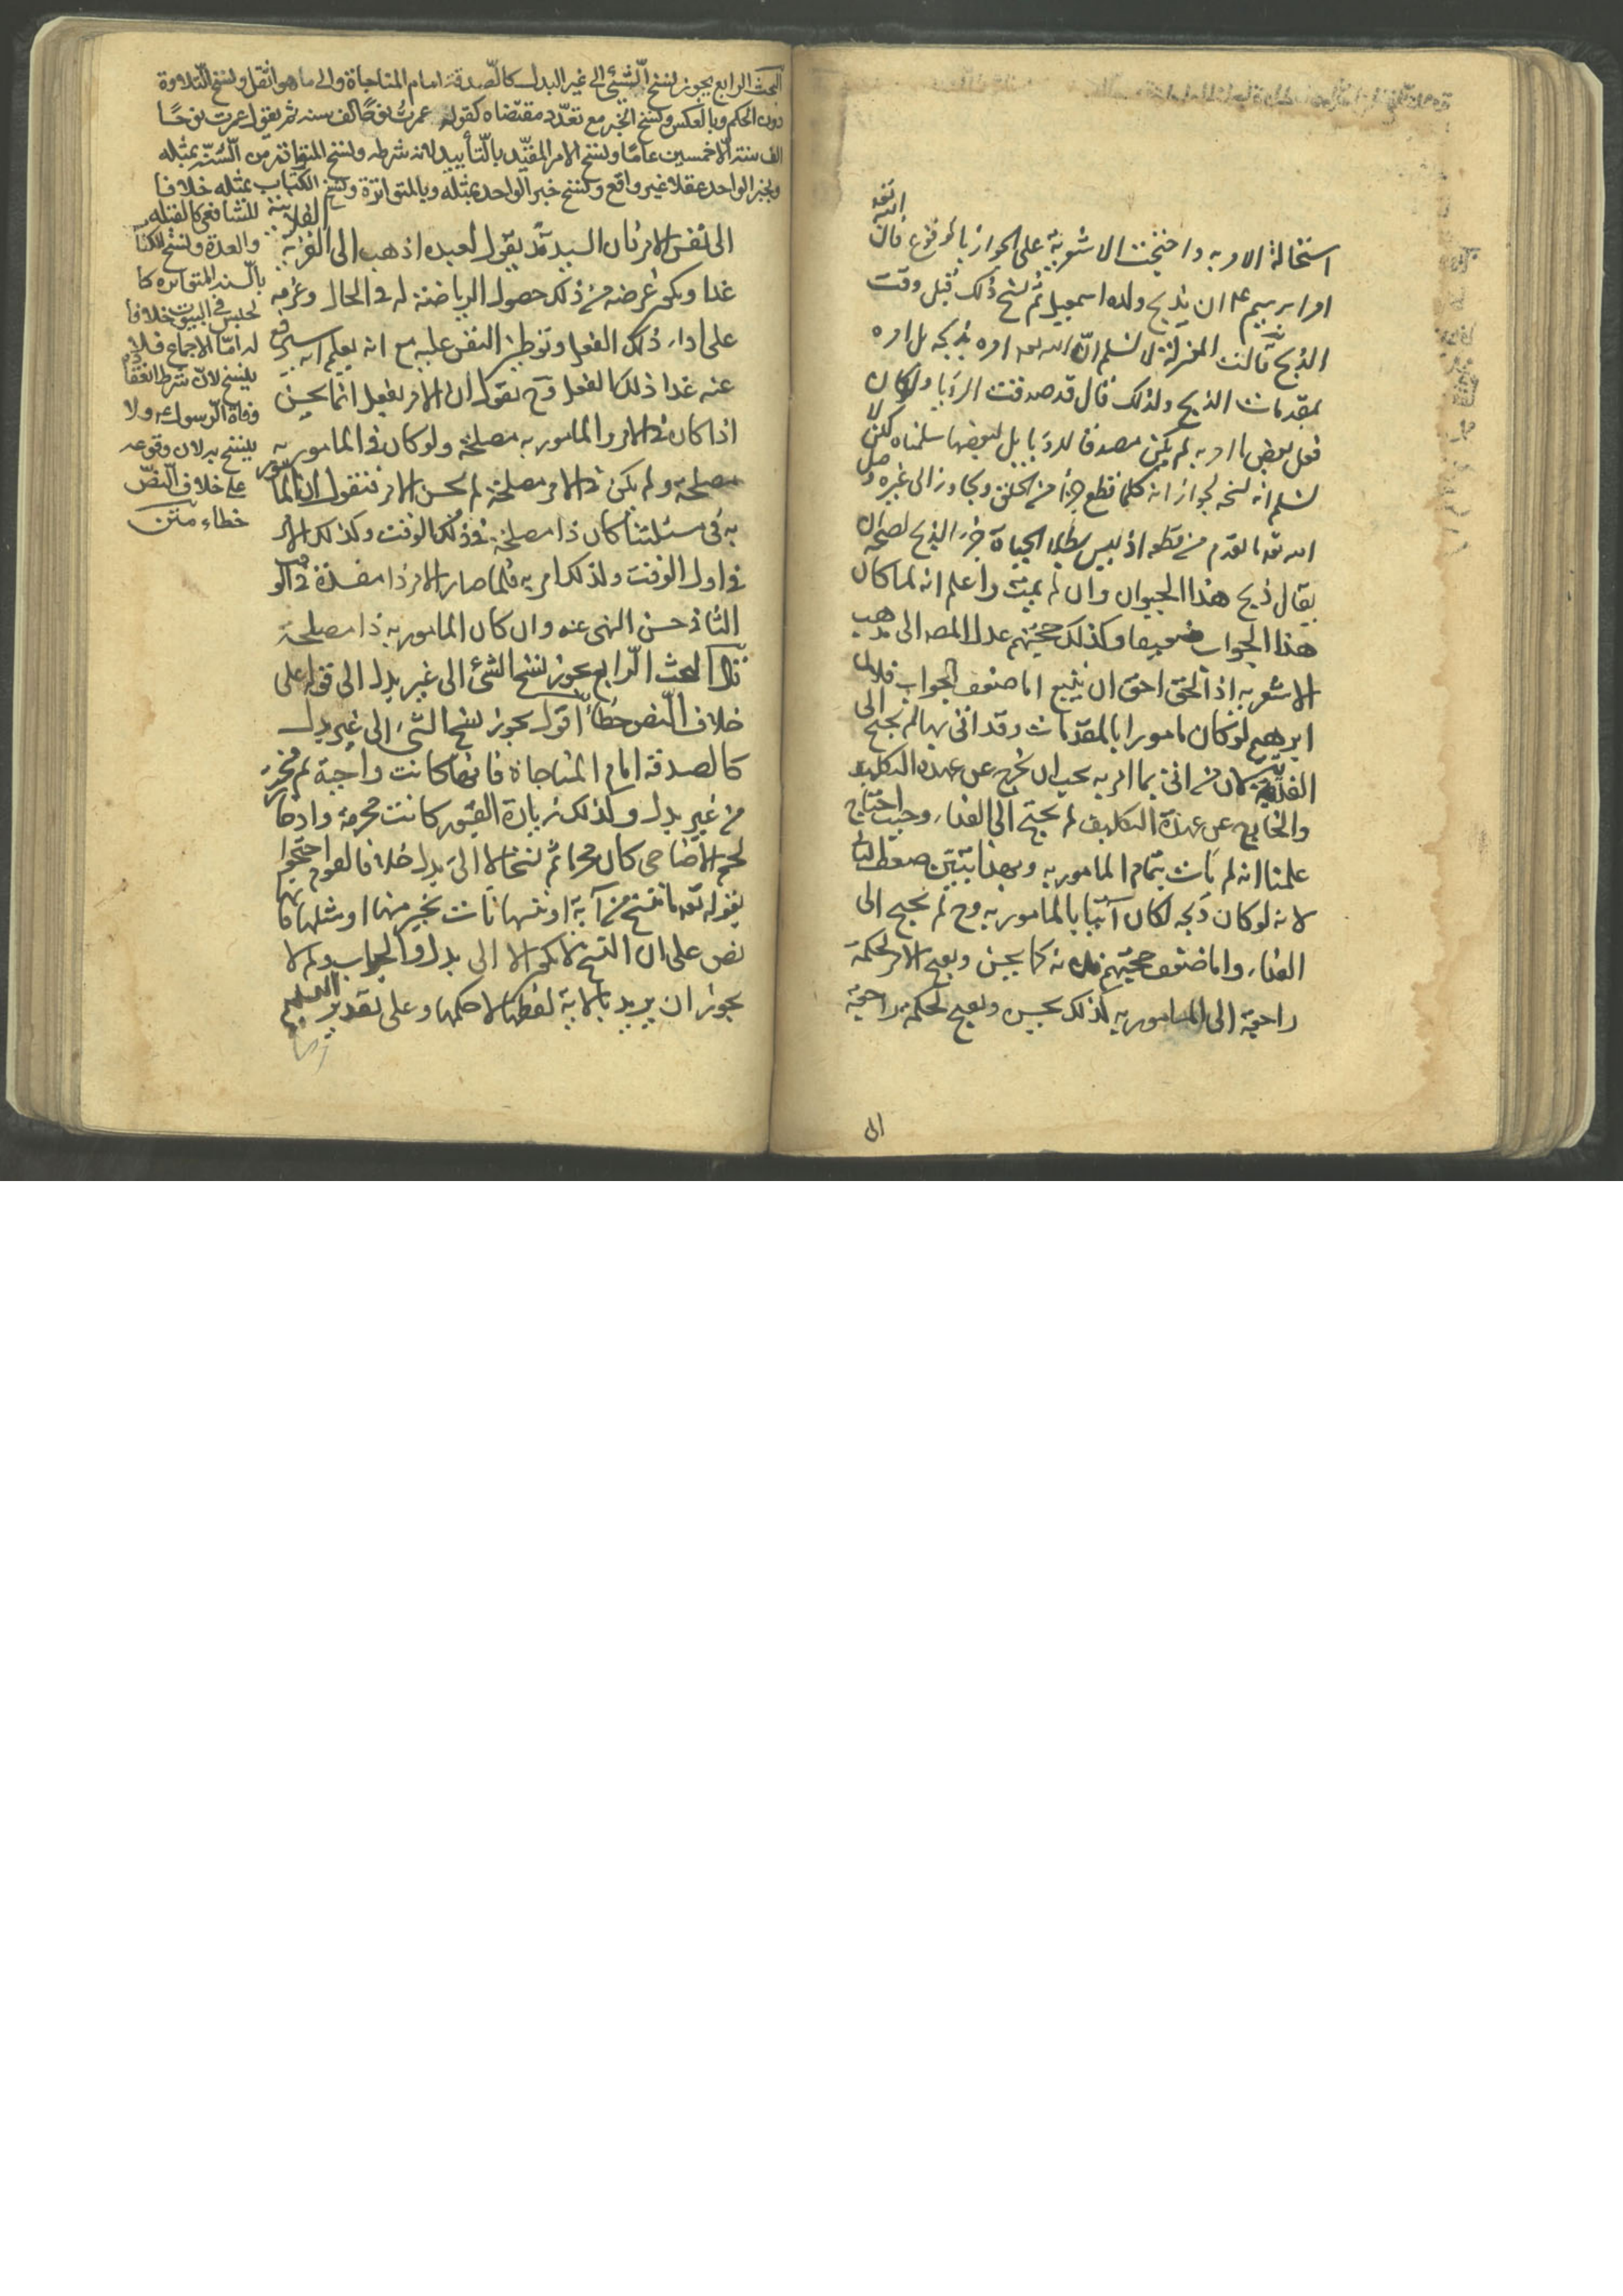 استحالة الامر به واحتجت الاشعرية على الجواز بالوقوع فان الله تعه
امر ابرهيم ع م ان يذبح ولده اسمعيل ثم نسخ ذلك قبل وقت
الذبح قالت المعتزلة لا نسلم ان الله تعه امره بذبحه بل امره
بمقدمات الذبح ولذلك قال قد صدقت الرؤيا ولو كان
فعل بعض ما امر به لم يكن مصدقا للرؤيا بل لبعضها سلمناه لكن لا
نسلم انه نسخه لجواز انه كلما قطع جزأ من الحلق وتجاوز الى غيره وصل
الله تعه ما تقدم من قطعه اذ ليس بطلان الحياة جزء الذبح لصحة ان
يقال ذبح هذا الحيوان وان لم يمت واعلم انه لما كان
هذا الجواب ضعيفا وكذلك حجتهم عدل المصه الى مذهب
الاشعرية اذ الحق احق ان يتبع اما ضعف الجواب فلان
ابرهيم لو كان مامورا بالمقدمات وقد اتى بها لم يحتج الى
الفدية لان من اتى بما امر به يجب ان يخرج عن عهدة التكليف
والخارج عن عهدة التكليف لم يحتج الى الفداء وحيث احتاج
علمنا انه لم يات بتمام المامور به وبهذا يتبين ضعف الثاني
لانه لو كان ذبحه لكان آتيا بالمامور به وح لم يحتج الى
الفداء واما ضعف حجتهم فلانه كما يحسن ويقبح الامر لحكمة
راجعة الى المامور به كذلك يحسن ويقبح لحكمة راجعة
الى
البحث الرابع يجوز نسخ الشيء الى غير البدل كالصدقة امام المناجاة والى ما هو اثقل ونسخ التلاوة
دون الحكم وبالعكس ونسخ الخبر مع تعدد مقتضاه كقوله عمرت نوحا الف سنه ثم يقول عمرت نوحا
الف سنة الا خمسين عاما ونسخ الامر المقيد بالتأبيد لانه شرطه ونسخ المتواتر من السنة بمثله
وبخبر الواحد عقلا غير واقع ونسخ خبر الواحد بمثله وبالمتواترة ونسخ الكتاب بمثله خلافا
للشافعي كالقبلة
والعدة ونسخ الكتاب
بالسنة المتواترة كا
لحبس في البيوت خلافا
له اما الاجماع فلا
ينسخ لان شرط انعقاده
وفاة الرسول ص ولا
ينسخ به لان وقوعه
على خلاف النص
خطاء متن
الى نفس الامر فان السيد قد يقول لعبده اذهب الى القرية الفلانية
غدا ويكون غرضه من ذلك حصول الرياضة له في الحال وعزمه
على اداء ذلك الفعل وتوطين النفس عليه مع انه يعلم انه سيرفع
عنه غدا ذلك الفعل وح نقول ان الامر بفعل انما يحسن
اذا كان في الامر والمامور به مصلحة ولو كان في المامور به
مصلحة ولم يكن في الامر مصلحة لم يحسن الامر فنقول ان المامور
به في مسئلتنا كان ذا مصلحة في ذلك الوقت وكذلك الامر
في اول الوقت ولذلك امر به فلما صار الامر ذا مفسدة في الوقت
الثاني حسن النهى عنه وان كان المامور به ذا مصلحة
قال البحث الرابع يجوز نسخ الشئ الى غير بدل الى قوله على
خلاف النص خطأ اقول يجوز نسخ الشئ الى غير بدل
كالصدقة امام المناجاة فانها كانت واجبة ثم
من غير بدل وكذلك زيارة القبور كانت محرمة وادخار
لحم الاضاحى كان محرما ثم نسخا لا الى بدل خلافا لقوم احتجوا
بقوله تعه ما ننسخ من آية او ننسها نات بخير منها او مثلها فانها
نص على ان النسخ لا يكون الا الى بدل والجواب لم لا
يجوز ان يريد بالاية لفظها لا حكمها وعلى تقدير التسليم